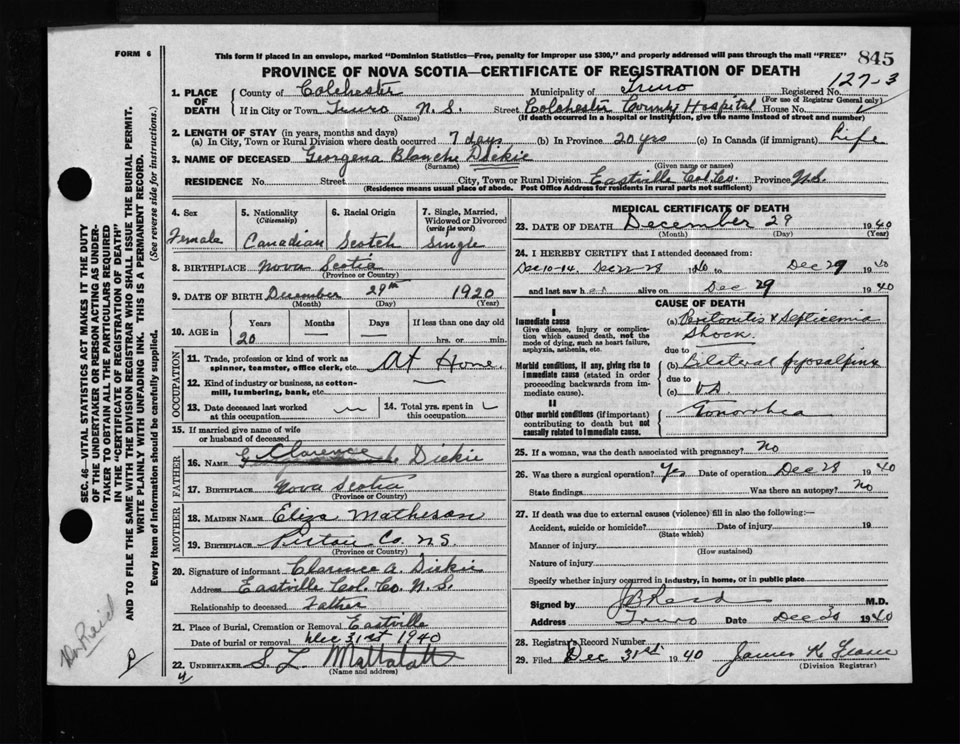 FORM 6
This form if placed in an envelope, marked "Dominion Statistics—Free, penalty for improper use $300," and properly addressed will pass through the mail "FREE"
845
PROVINCE OF NOVA SCOTIA—CERTIFICATE OF REGISTRATION OF DEATH
127-3
1. PLACE OF DEATH
County of Colchester Municipality of Truro Registered No.
(For use of Registrar General only)
If in City or Town Truro N.S. Street Colchester County Hospital House No.
(Name) (If death occurred in a hospital or institution, give the name instead of street and number)
2. LENGTH OF STAY (in years, months and days)
(a) In City, Town or Rural Division where death occurred 7 days (b) In Province 20 yrs (c) In Canada (if immigrant) Life
3. NAME OF DECEASED Georgena Blanche Dickie
(Surname) (Given name or names)
RESIDENCE No. Street City, Town or Rural Division Eastville Col. Co. Province N.S.
(Residence means usual place of abode. Post Office Address for residents in rural parts not sufficient)
4. Sex
Female
5. Nationality
(Citizenship)
Canadian
6. Racial Origin
Scotch
7. Single, Married, Widowed or Divorced
(write the word)
Single
8. BIRTHPLACE Nova Scotia
(Province or Country)
9. DATE OF BIRTH December 29th 1920
(Month) (Day) (Year)
10. AGE in
Years Months Days If less than one day old
20 — — hrs. or min.
OCCUPATION
11. Trade, profession or kind of work as spinner, teamster, office clerk, etc. At Home
12. Kind of industry or business, as cotton-mill, lumbering, bank, etc. —
13. Date deceased last worked at this occupation
14. Total yrs. spent in this occupation
15. If married give name of wife or husband of deceased
FATHER
16. NAME Clarence Dickie
17. BIRTHPLACE Nova Scotia
(Province or Country)
MOTHER
18. MAIDEN NAME Eliza Matheson
19. BIRTHPLACE Pictou Co. N.S.
(Province or Country)
20. Signature of informant Clarence A. Dickie
Address Eastville Col. Co. N.S.
Relationship to deceased Father
21. Place of Burial, Cremation or Removal Eastville
Date of burial or removal Dec 31st 1940
22. UNDERTAKER S L
(Name and address)
MEDICAL CERTIFICATE OF DEATH
23. DATE OF DEATH December 29 1940
(Month) (Day) (Year)
24. I HEREBY CERTIFY that I attended deceased from:
Dec 10-14, 1940 to Dec 29 1940
and last saw her alive on Dec 29 1940
CAUSE OF DEATH
I
Immediate cause
Give disease, injury or complication which caused death, not the mode of dying, such as heart failure, asphyxia, asthenia, etc.
(a) Peritonitis & Septicemia
Shock
due to
Morbid conditions, if any, giving rise to immediate cause (stated in order proceeding backwards from immediate cause).
(b) Bilateral pyosalpinx
due to
(c)
II
Other morbid conditions (if important) contributing to death but not causally related to immediate cause.
Gonorrhea
25. If a woman, was the death associated with pregnancy? No
26. Was there a surgical operation? Yes Date of operation Dec 28 1940
State findings Was there an autopsy? No
27. If death was due to external causes (violence) fill in also the following:—
Accident, suicide or homicide? Date of injury 19
(State which)
Manner of injury
(How sustained)
Nature of injury
Specify whether injury occurred in industry, in home, or in public place
Signed by J B Reid M.D.
Address Truro Date Dec 30 1940
28. Registrar's Record Number
29. Filed Dec 31st 1940 James K
(Division Registrar)
SEC. 46—VITAL STATISTICS ACT MAKES IT THE DUTY
OF THE UNDERTAKER OR PERSON ACTING AS UNDER-
TAKER TO OBTAIN ALL THE PARTICULARS REQUIRED
IN THE "CERTIFICATE OF REGISTRATION OF DEATH"
AND TO FILE THE SAME WITH THE DIVISION REGISTRAR WHO SHALL ISSUE THE BURIAL PERMIT.
WRITE PLAINLY WITH UNFADING INK. THIS IS A PERMANENT RECORD.
Every item of information should be carefully supplied. (See reverse side for instructions.)
Dr Reid